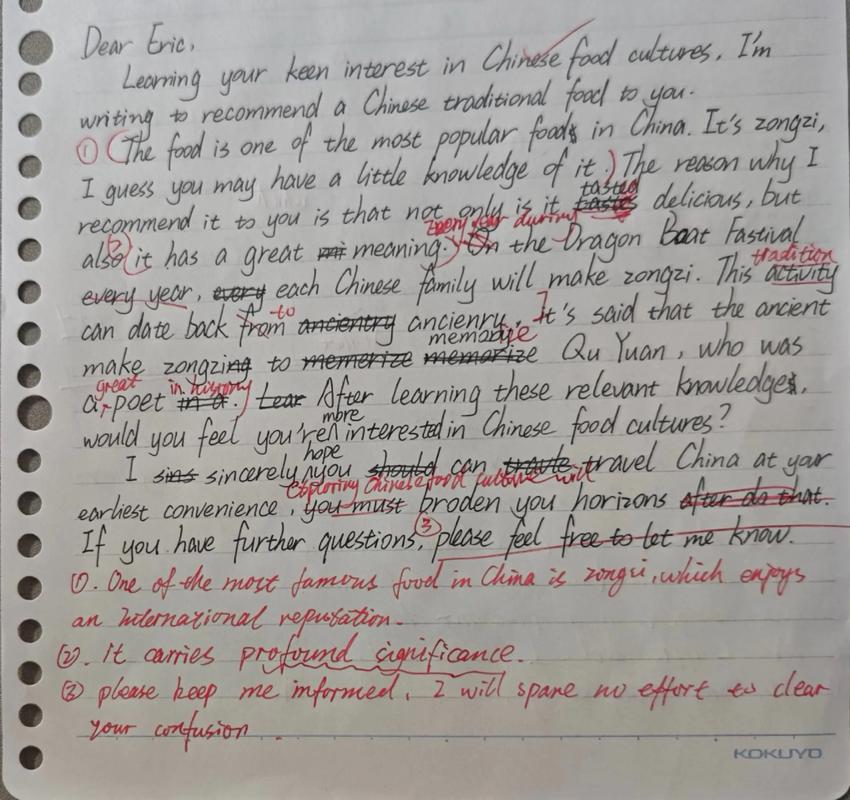 Dear Eric,
Learning your keen interest in Chinese food cultures, I'm
writing to recommend a Chinese traditional food to you.
① (The food is one of the most popular foods in China. It's zongzi,
I guess you may have a little knowledge of it.) The reason why I
tasted
recommend it to you is that not only is it tastes delicious, but
every year during
also ②(it has a great meaning.) On the Dragon Boat Fastival
tradition
every year, every each Chinese family will make zongzi. This activity
to
can date back from ancientry ancienry. It's said that the ancient
memorize
make zongzing to memerize memorize Qu Yuan, who was
great in history
a poet in a. Lear After learning these relevant knowledges,
more
would you feel you're interested in Chinese food cultures?
hope
I sins sincerely you should can travle travel China at your
exploring Chinese food culture will
earliest convenience, you must broden you horizons after do that.
If you have further questions, ③ please feel free to let me know.
①. One of the most famous food in China is zongzi, which enjoys
an International reputation.
②. it carries profound significance.
③ please keep me informed, I will spare no effort to clear
your confusion.
KOKUYO